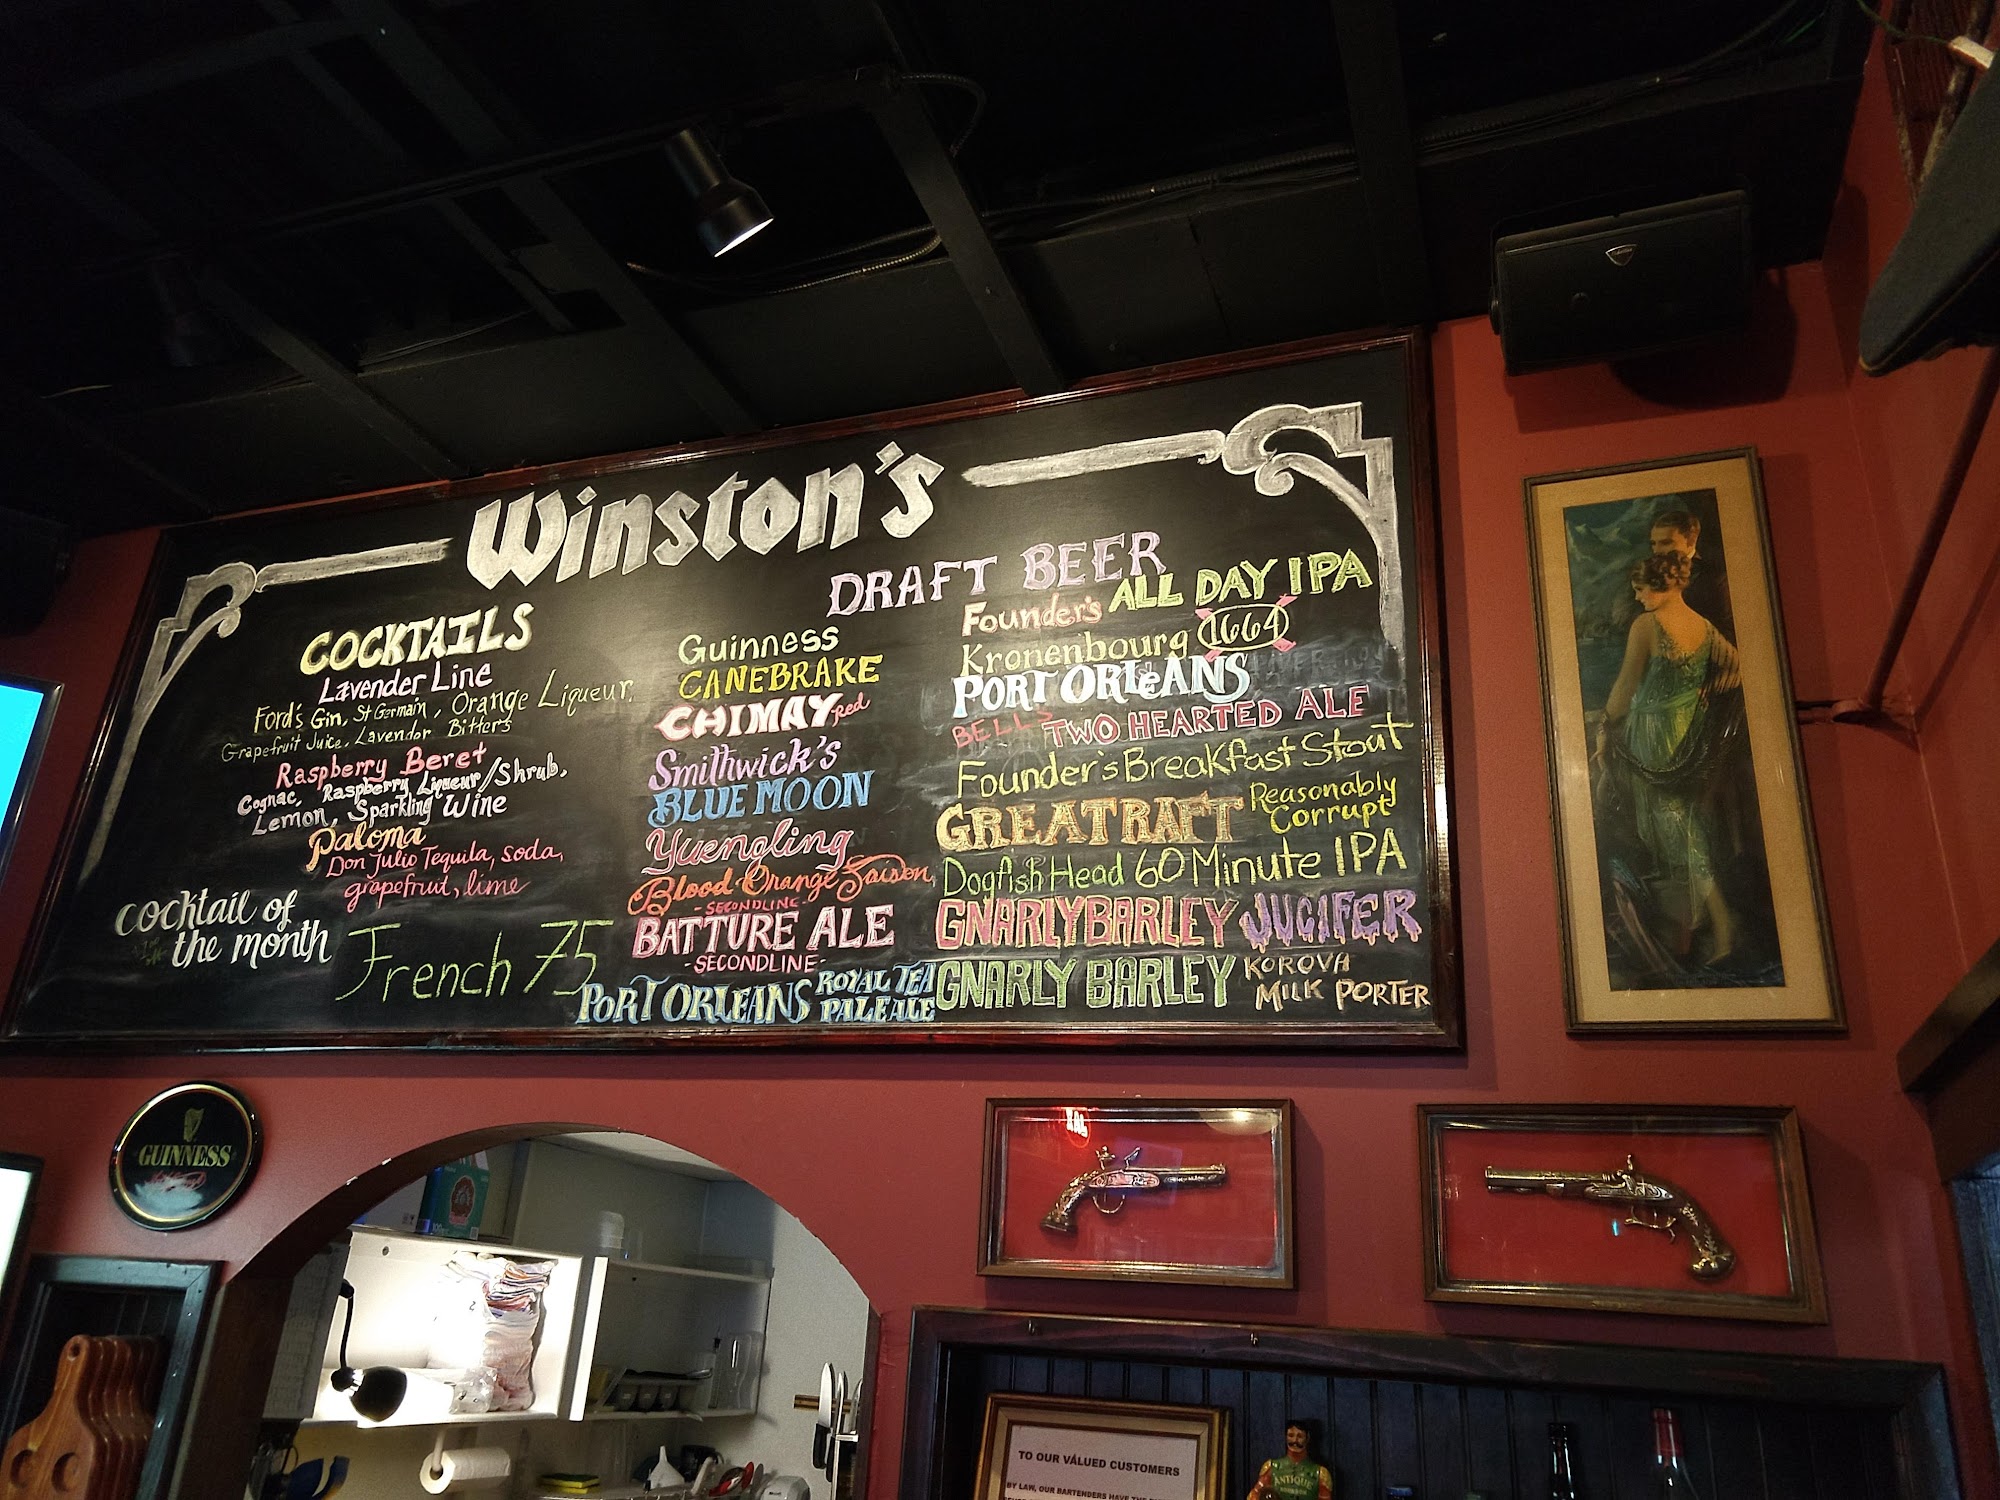 Winston's
COCKTAILS
Lavender Line
Ford's Gin, St Germain, Orange Liqueur,
Grapefruit Juice, Lavender Bitters
Raspberry Beret
Cognac, Raspberry Liqueur/Shrub,
Lemon, Sparkling Wine
Paloma
Don Julio Tequila, soda,
grapefruit, lime
cocktail of
the month
French 75
DRAFT BEER
Guinness
CANEBRAKE
CHIMAY Red
Smithwick's
BLUE MOON
Yuengling
Blood Orange Saison,
-SECONDLINE-
BATTURE ALE
-SECONDLINE-
PORT ORLEANS ROYAL TEA
PALE ALE
Founder's ALL DAY IPA
Kronenbourg 1664
PORT ORLEANS
BELL'S TWO HEARTED ALE
Founder's Breakfast Stout
GREAT RAFT Reasonably
Corrupt
Dogfish Head 60 Minute IPA
GNARLY BARLEY JUCIFER
GNARLY BARLEY KOROVA
MILK PORTER
GUINNESS
TO OUR VALUED CUSTOMERS
BY LAW, OUR BARTENDERS HAVE THE
ANTIQUE